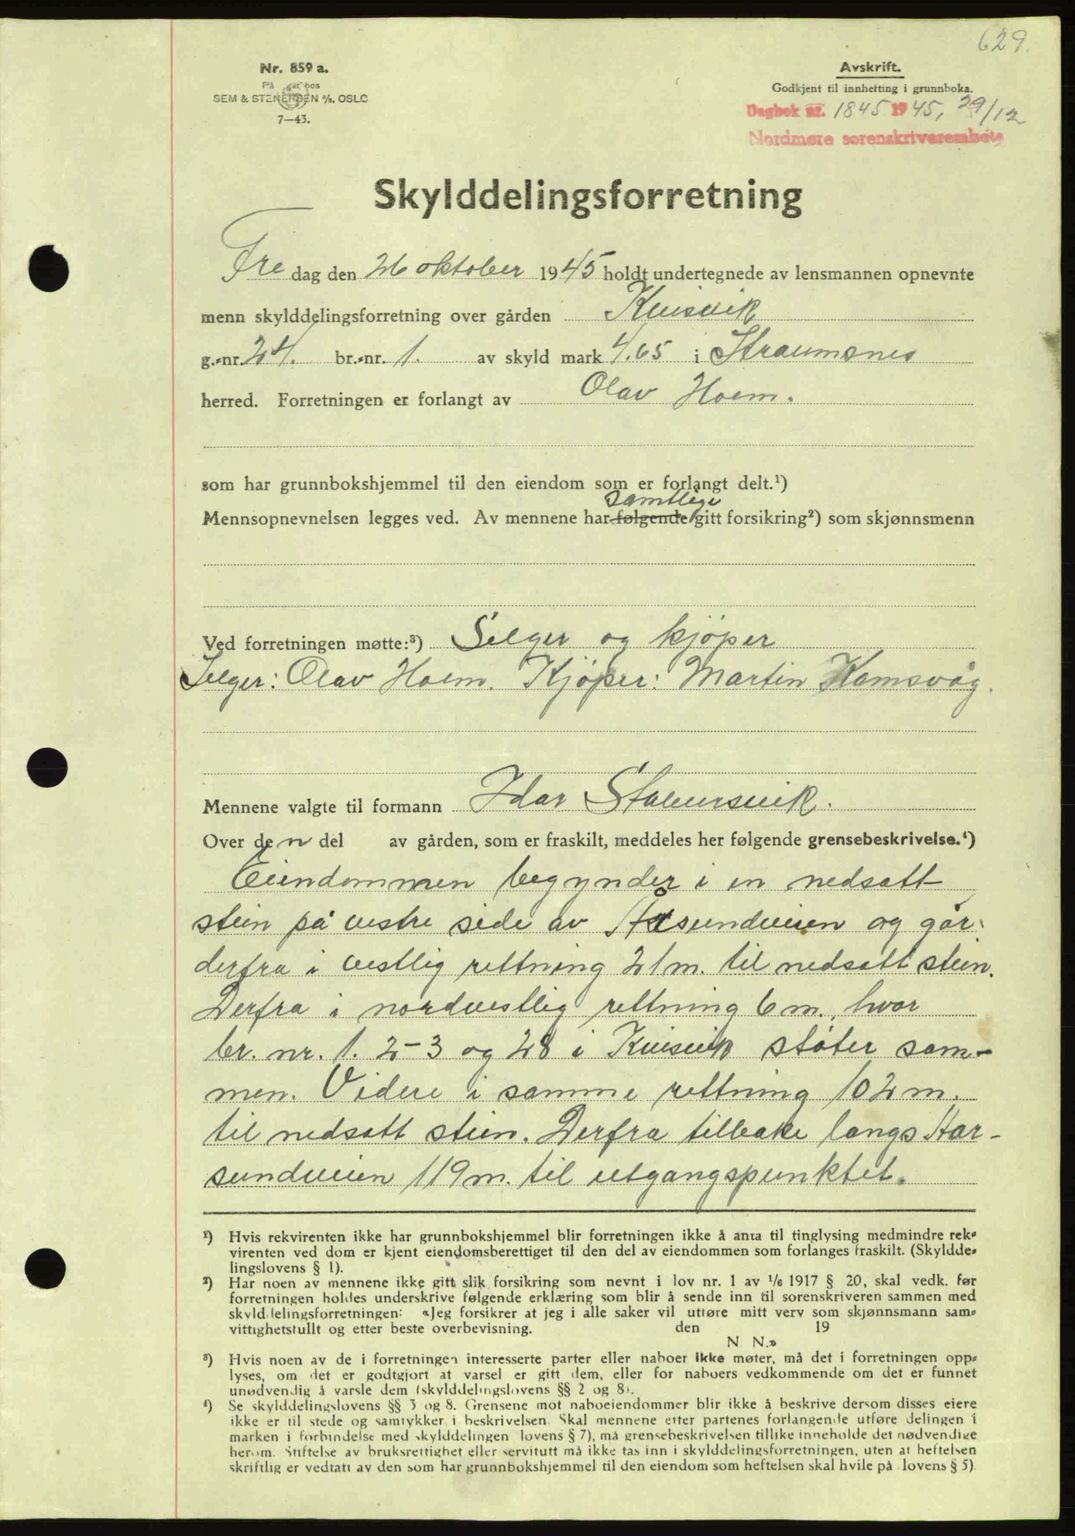 629.
Nr. 859 a.
På lager hos
SEM & STENERSEN A/S, OSLO
7—43.
Avskrift.
Godkjent til innhefting i grunnboka.
Dagbok nr. 1845 1945, 29/12
Nordmøre sorenskriverembete
Skylddelingsforretning
Fre dag den 26 oktober 1945 holdt undertegnede av lensmannen opnevnte
menn skylddelingsforretning over gården Kvisvik
g.-nr. 24. br.-nr. 1. av skyld mark 4.65 i Straumsnes
herred. Forretningen er forlangt av Olav Hoem.
som har grunnbokshjemmel til den eiendom som er forlangt delt.¹)
samtlige
Mennsopnevnelsen legges ved. Av mennene har følgende gitt forsikring²) som skjønnsmenn
Ved forretningen møtte:³) Selger og kjøper
Selger: Olav Hoem. Kjøper: Martin Kamsvåg.
Mennene valgte til formann Idar Stabursvik.
Over den del av gården, som er fraskilt, meddeles her følgende grensebeskrivelse.⁴)
Eiendommen begynder i en nedsatt
stein på vestre side av Harsundveien og går
derfra i vestlig rettning 21 m. til nedsatt stein.
Derfra i nordvestlig rettning 6 m., hvor
br. nr. 1. 2-3 og 28 i Kvisvik støter sam-
men. Videre i samme rettning 102 m.
til nedsatt stein. Derfra tilbake langs Har-
sundveien 119 m. til utgangspunktet.
¹) Hvis rekvirenten ikke har grunnbokshjemmel blir forretningen ikke å anta til tinglysing medmindre rek-
virenten ved dom er kjent eiendomsberettiget til den del av eiendommen som forlanges fraskilt. (Skyldde-
lingslovens § 1).
²) Har noen av mennene ikke gitt slik forsikring som nevnt i lov nr. 1 av 1/6 1917 § 20, skal vedk. før
forretningen holdes underskrive følgende erklæring som blir å sende inn til sorenskriveren sammen med
skylddelingsforretningen: «Jeg forsikrer at jeg i alle saker vil utføre mitt verv som skjønnsmann sam-
vittighetsfullt og etter beste overbevisning. den 19
N. N.»
³) Hvis noen av de i forretningen interesserte parter eller naboer ikke møter, må det i forretningen opp-
lyses, om det er godtgjort at varsel er gitt dem, eller for naboers vedkommende om det er funnet
unødvendig å varsle dem (skylddelingslovens §§ 2 og 8).
⁴) Se skylddelingslovens §§ 3 og 8. Grensene mot naboeiendommer blir ikke å beskrive dersom disses eiere
ikke er til stede og samtykker i beskrivelsen. Skal mennene etter partenes forlangende utføre delingen i
marken i forbindelse med skylddelingen (lovens § 7), må grensebeskrivelsen tillike inneholde det nødvendige
herom. Stiftelse av bruksrettighet eller servitutt må ikke tas inn i skylddelingsforretningen, uten at heftelsen
skriftlig er vedtatt av den som har grunnbokshjemmel til den eiendom som heftelsen skal hvile på (lovens § 5).